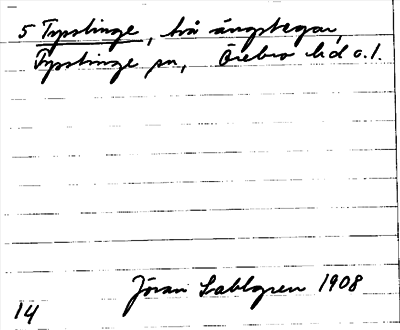 5 Tysslinge, två ängstegar,
Tysslinge sn, Örebro hd o. l.
Jöran Sahlgren 1908
14